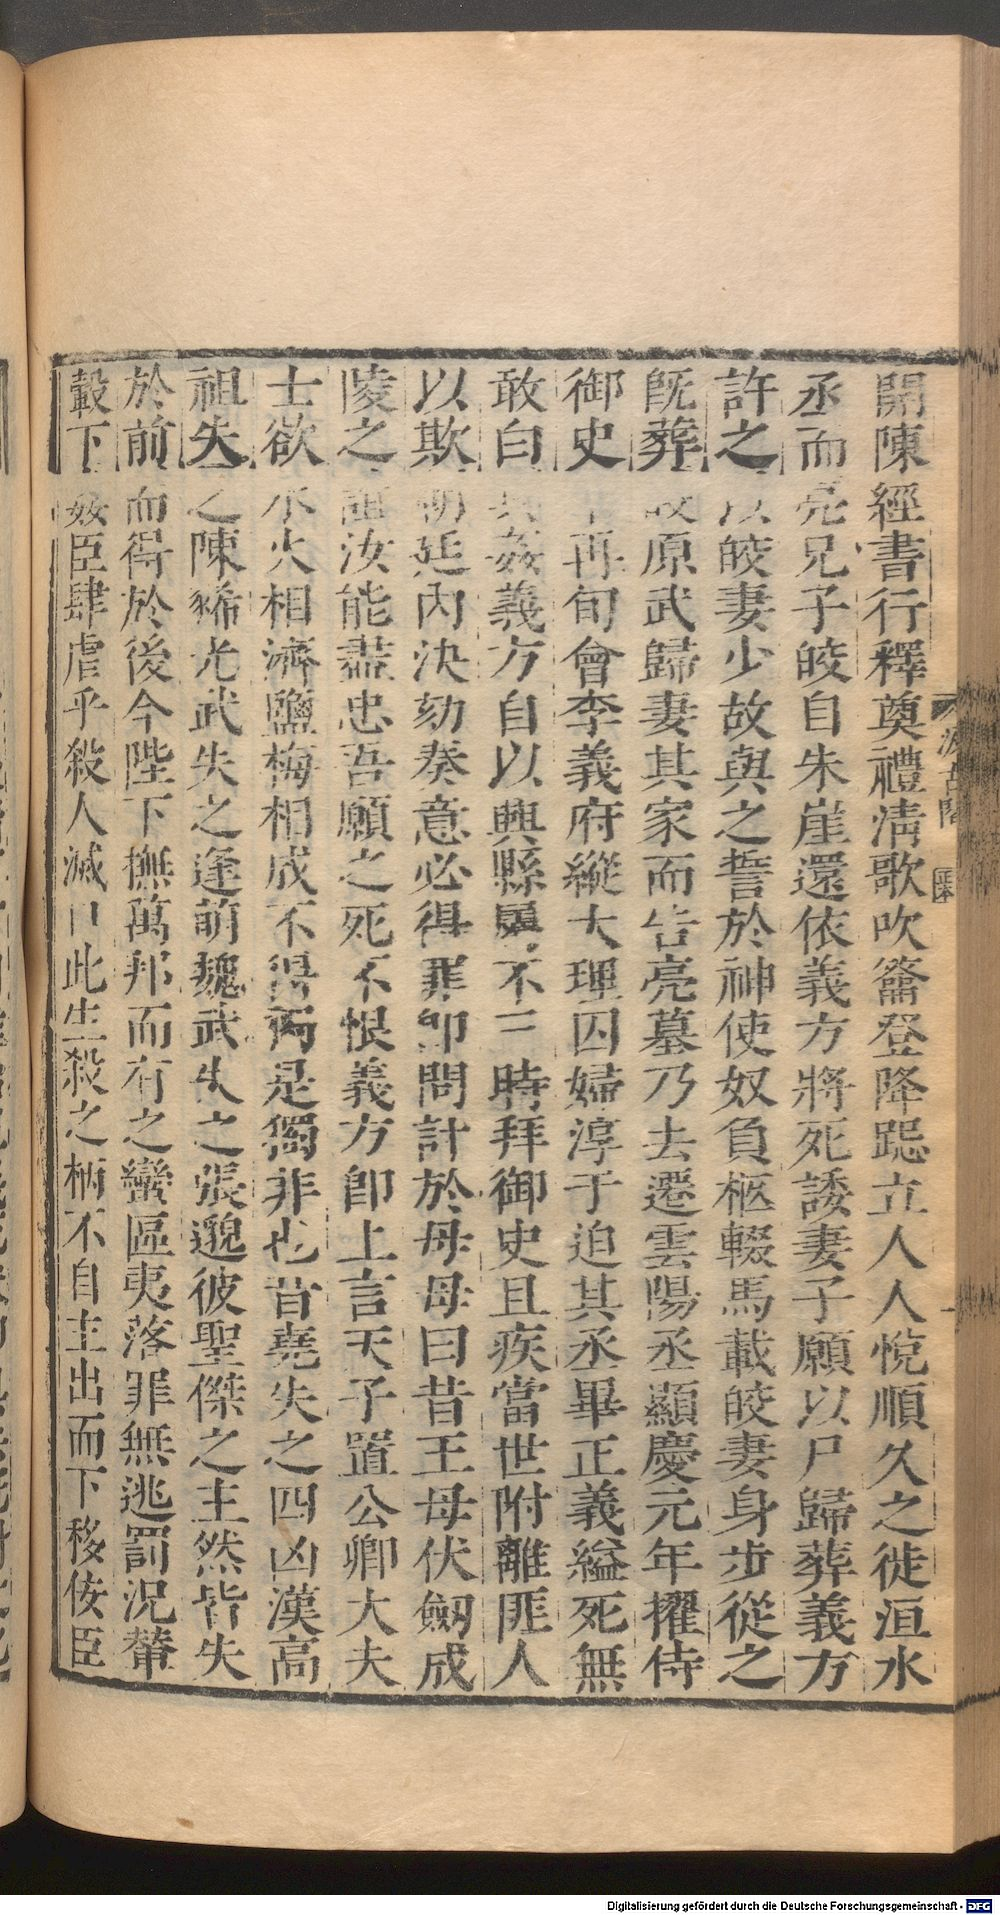 開陳經書行釋奠禮淸歌吹籥登降跽立人人悅順久之徙洹水
丞而亮兄子皎自朱崖還依義方將死諉妻子願以尸歸葬義方
許之以皎妻少故與之誓於神使奴負柩輟馬載皎妻身步從之
旣葬皎原武歸妻其家而告亮墓乃去遷雲陽丞顯慶元年擢侍
御史不再旬會李義府縱大理囚婦淳于迫其丞畢正義縊死無
敢白其姦義方自以興縣屬不三時拜御史且疾當世附離匪人
以欺朝廷內決劾奏意必得罪卽問計於母母曰昔王母伏劒成
陵之誼汝能盡忠吾願之死不恨義方卽上言天子置公卿大夫
士欲水火相濟鹽梅相成不得兩是獨非也昔堯失之四凶漢高
祖失之陳豨光武失之逢萌魏武失之張邈彼聖傑之主然皆失
於前而得於後今陛下撫萬邦而有之蠻區夷落罪無逃罰況輦
轂下姦臣肆虐乎殺人滅口此生殺之柄不自主出而下移佞臣
汲古閣
Digitalisierung gefördert durch die Deutsche Forschungsgemeinschaft - DFG